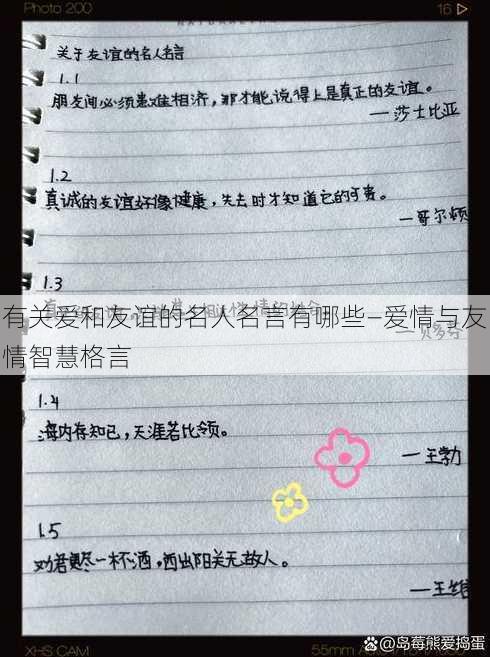 Photo 200
16
关于友谊的名人名言
1.1
朋友间必须患难相济,那才能说得上是真正的友谊。
—莎士比亚
1.2
真诚的友谊好像健康,失去时才知道它的可贵。
—哥尔顿
1.3
有关爱和友谊的名人名言有哪些—爱情与友
情智慧格言
1.4
海内存知己,天涯若比领。
—王勃
1.5
劝君更尽一杯酒,西出阳关无故人。
—王维
XHS CAM
55mm
@岛莓熊爱捣蛋